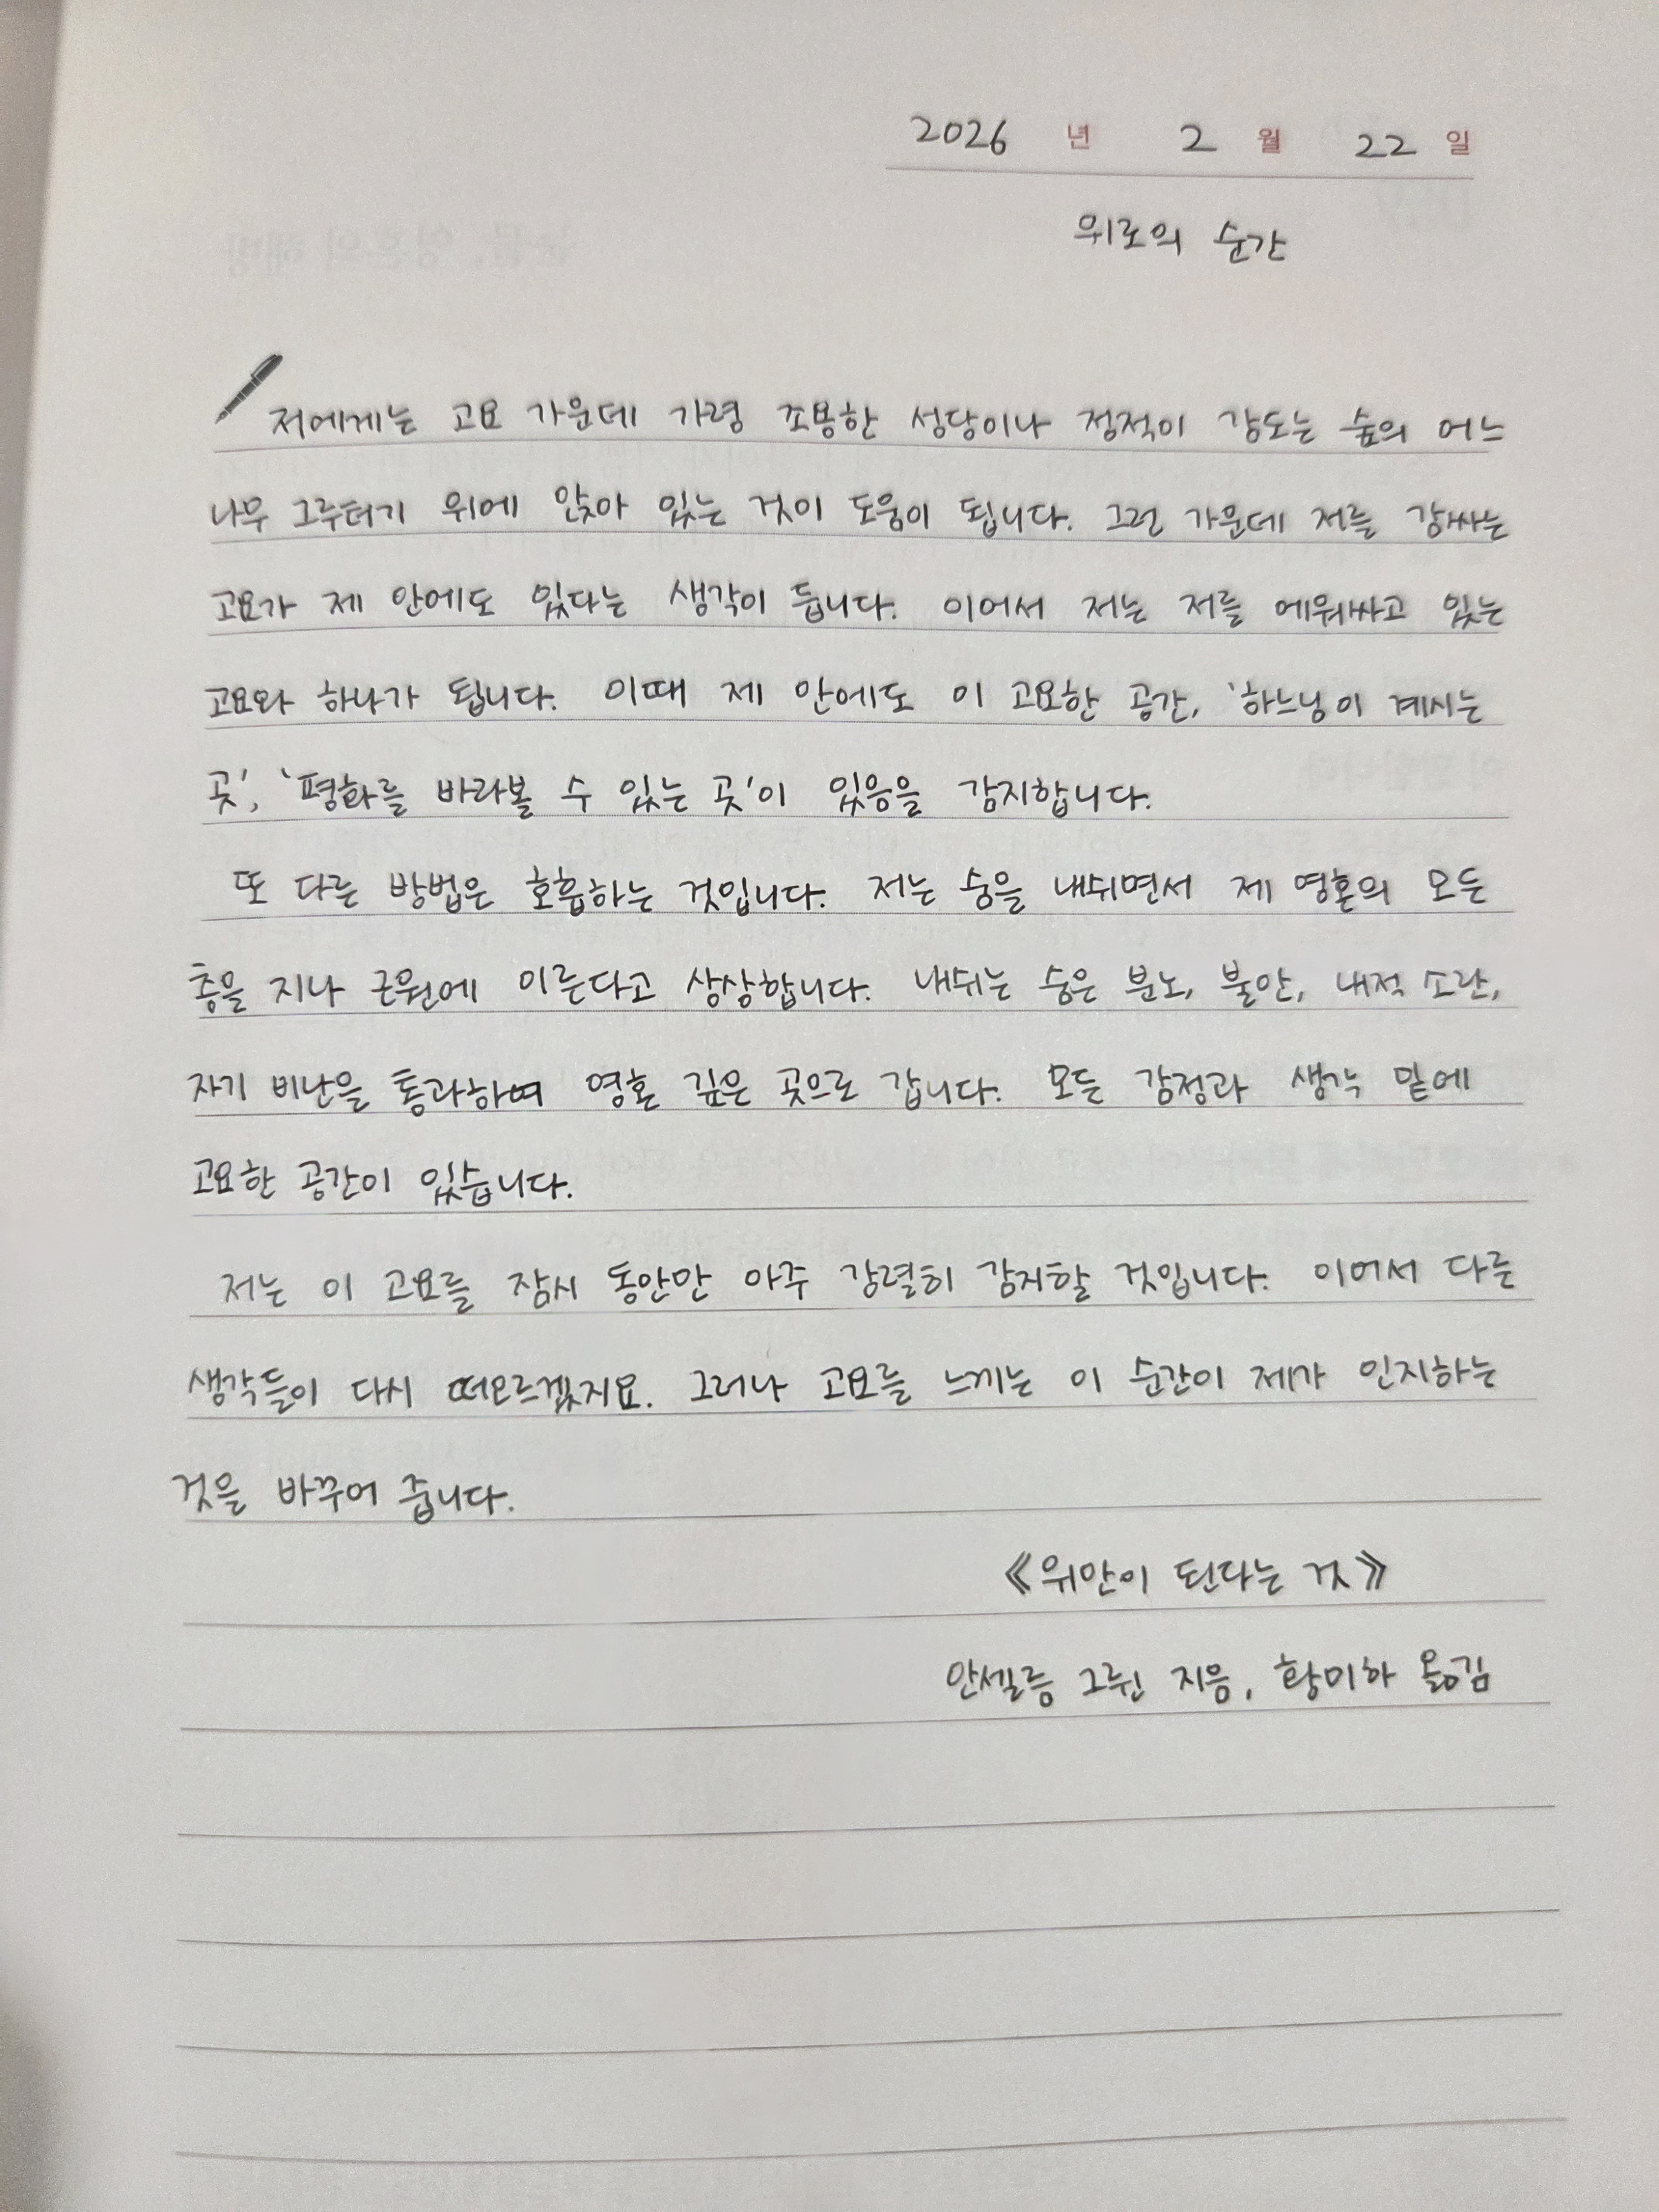 2026 년 2 월 22 일
위로의 순간
저에게는 고요 가운데 가령 조용한 성당이나 정적이 감도는 숲의 어느
나무 그루터기 위에 앉아 있는 것이 도움이 됩니다. 그런 가운데 저를 감싸는
고요가 제 안에도 있다는 생각이 듭니다. 이어서 저는 저를 에워싸고 있는
고요와 하나가 됩니다. 이때 제 안에도 이 고요한 공간, '하느님이 계시는
곳', '평화를 바라볼 수 있는 곳'이 있음을 감지합니다.
또 다른 방법은 호흡하는 것입니다. 저는 숨을 내쉬면서 제 영혼의 모든
층을 지나 근원에 이른다고 상상합니다. 내쉬는 숨은 분노, 불안, 내적 소란,
자기 비난을 통과하여 영혼 깊은 곳으로 갑니다. 모든 감정과 생각 밑에
고요한 공간이 있습니다.
저는 이 고요를 잠시 동안만 아주 강렬히 감지할 것입니다. 이어서 다른
생각들이 다시 떠오르겠지요. 그러나 고요를 느끼는 이 순간이 제가 인지하는
것을 바꾸어 줍니다.
《위안이 된다는 것》
안셀름 그륀 지음, 황미하 옮김